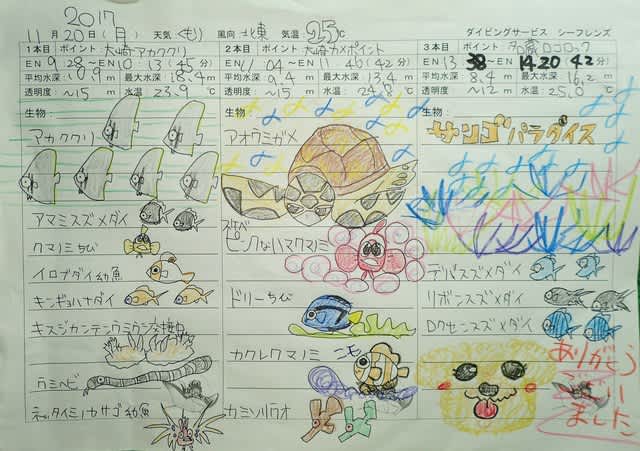 2017
11月20日(月) 天気 くもり 風向 北東 気温 25℃ ダイビングサービス シーフレンズ
1本目 ポイント 大崎アカククリ
EN 9:28～EN 10:13(45分)
平均水深 10.9m 最大水深 18.4m
透明度 ～15m 水温 23.9℃
生物:
アカククリ
アマミスズメダイ
クマノミちび
イロブダイ幼魚
キンギョハナダイ
キスジカンテンウミウシ交接中
ウミヘビ
ネッタイミノカサゴ幼魚
2本目 ポイント 大崎カメポイント
EN 11:04～EN 11:46(42分)
平均水深 9.4m 最大水深 13.4m
透明度 ～15m 水温 24.8℃
生物:
アオウミガメ
ピンクなハマクマノミ
ドリーちび
カクレクマノミ ニモ
カミソリウオ
3本目 ポイント 名蔵ロロロック
EN 13:38～EN 14:20(42分)
平均水深 8.4m 最大水深 16.2m
透明度 ～12m 水温 25.0℃
生物:
サンゴパラダイス
デバスズメダイ
リボンスズメダイ
ロクセンスズメダイ
ありがとう
ござい
ました